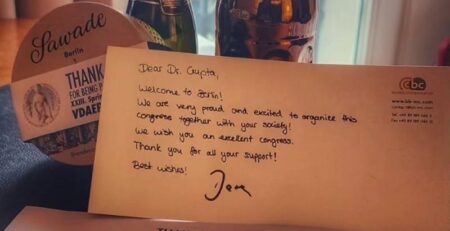 Sawade
Berlin
THANK
FOR BEING P
XXIII. Spri
VDAEP
Dear Dr. Gupta,
Welcome to Berlin!
We are very proud and excited to organize this
congress together with your society!
We wish you an excellent congress.
Thank you for all your support!
Best wishes!
cbc